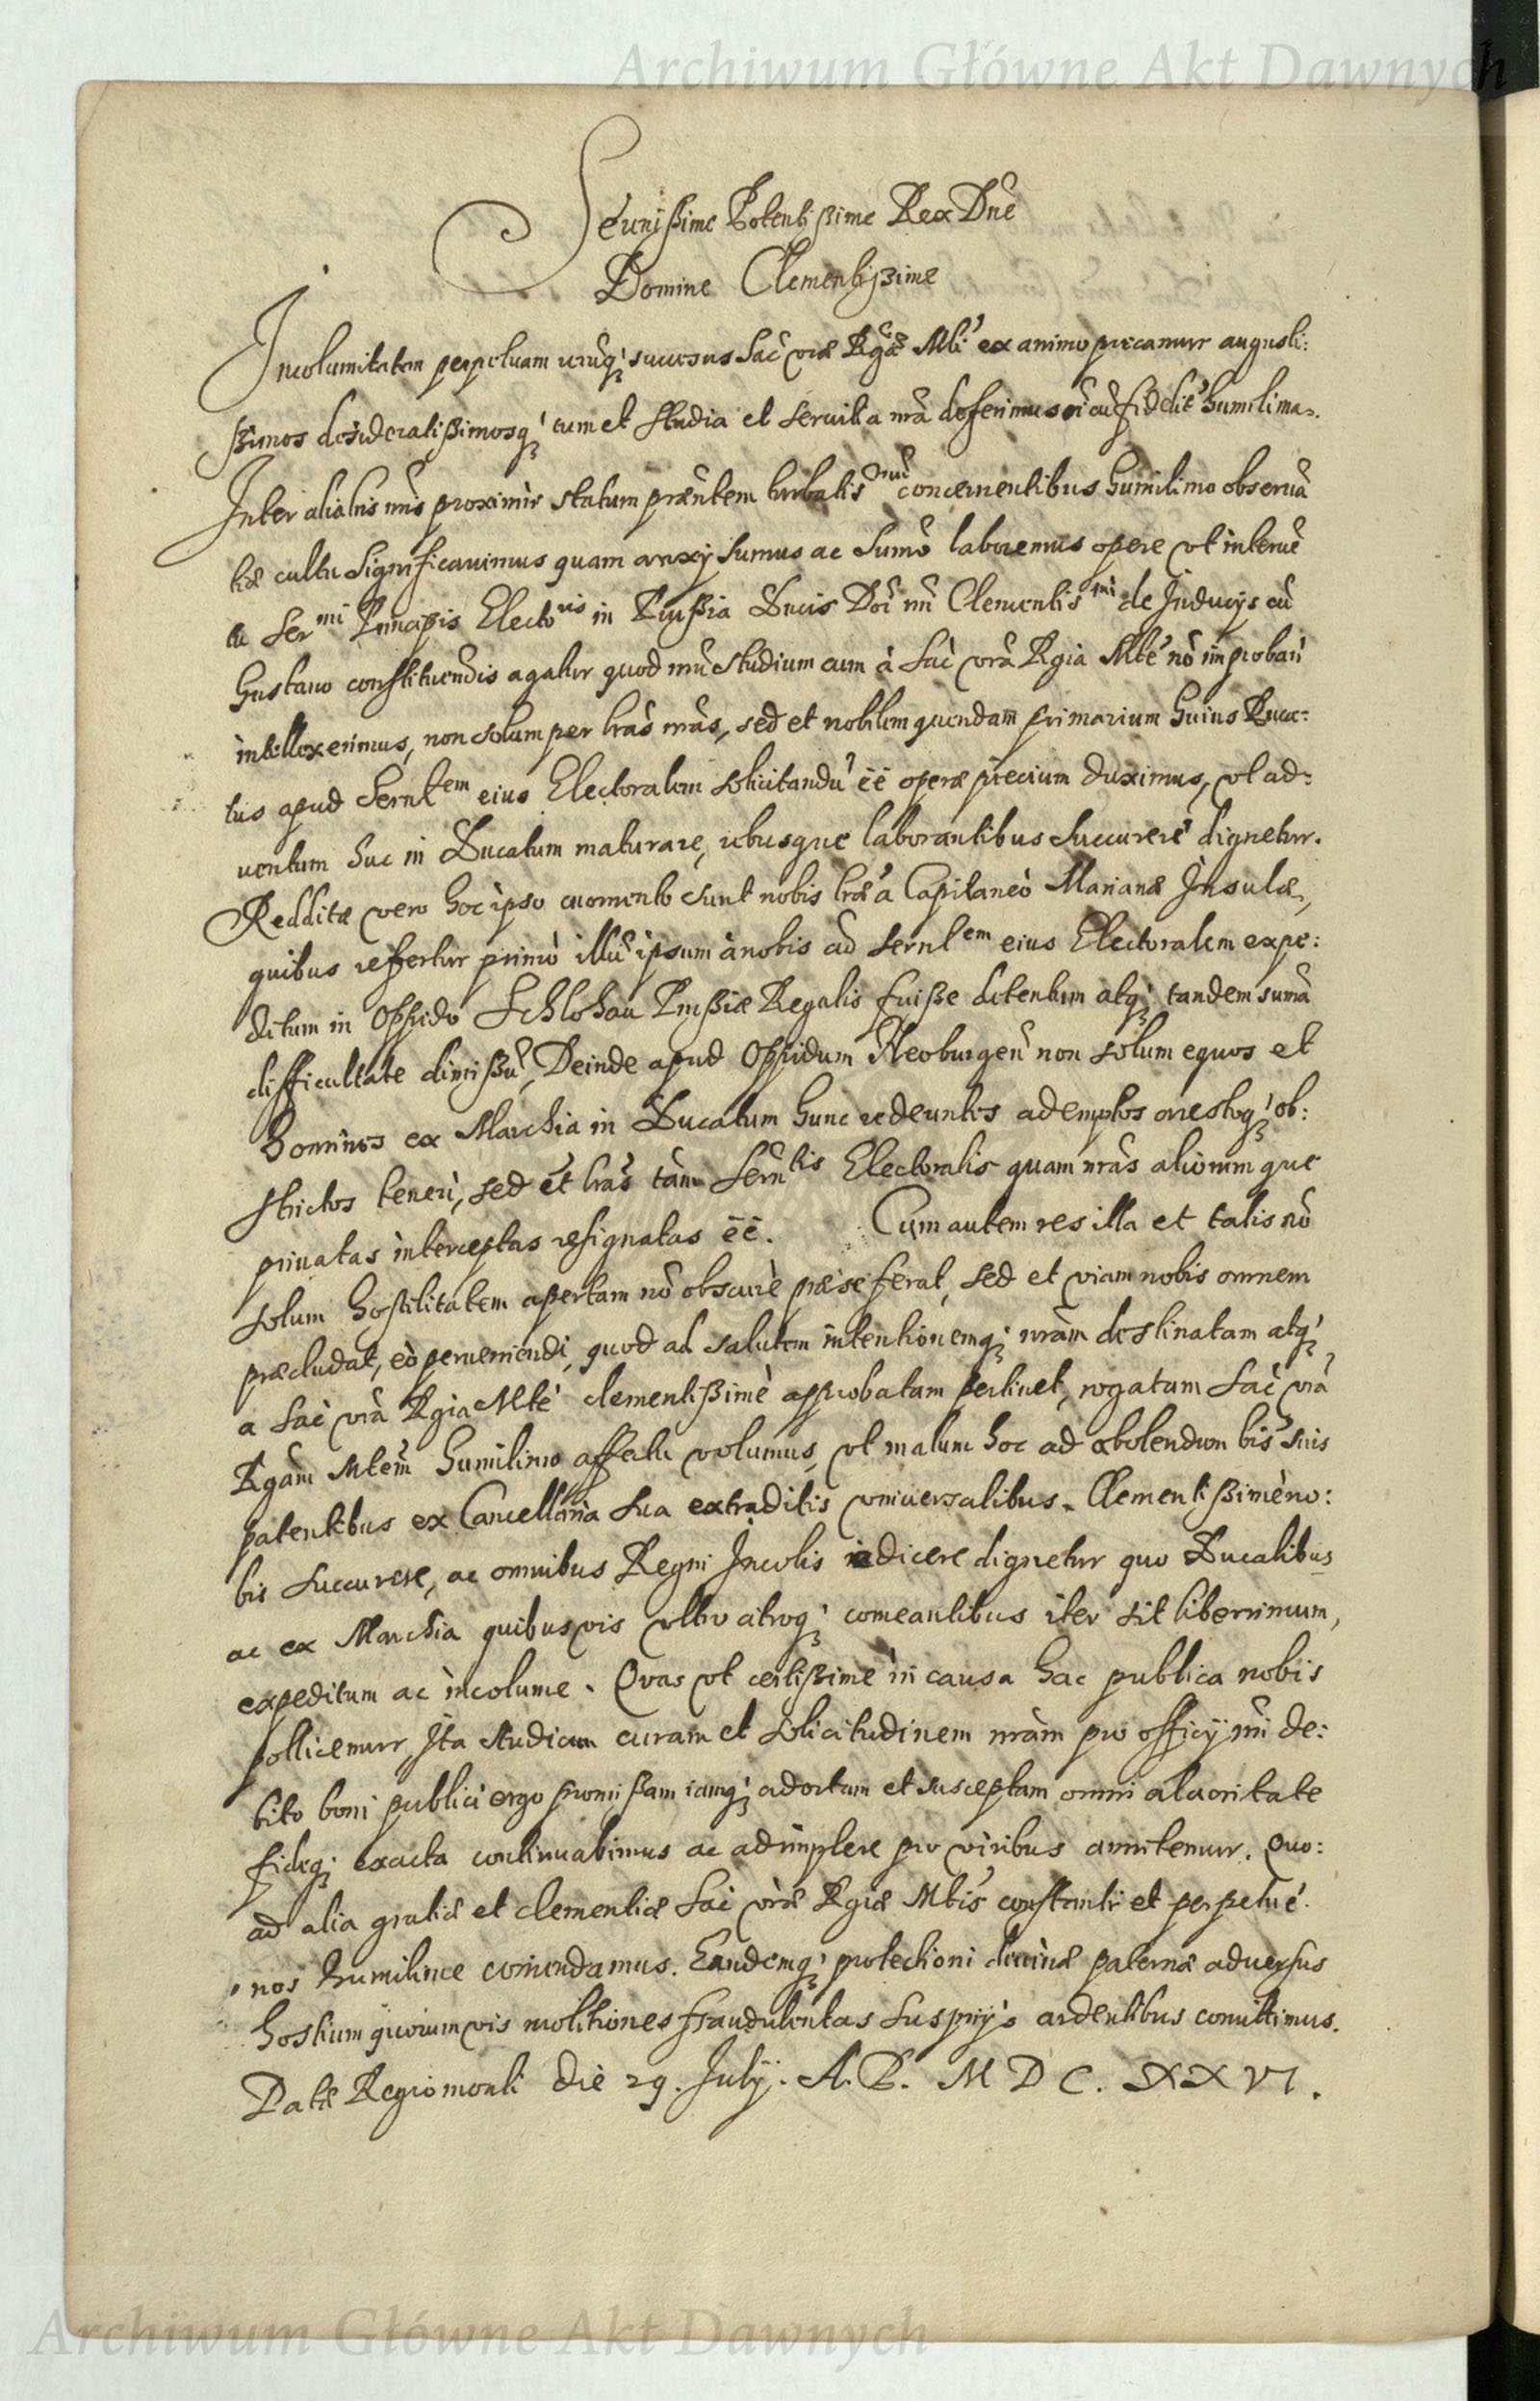 Archiwum Główne Akt Dawnych
Serenissime Potentissime Rex Dne
Domine Clementissime
Incolumitatem perpetuam rerumq; successus Sac vrae Rgae Mti ex animo precamur augusti:
ssimos desideratissimosq; cum et studia et servitia nra deferimus cu fidelit humilima.
Inter alia lris nris proximis statum praesentem turbatis concernentibus humilimo observa
tiae cultu significavimus quam anxij sumus ac sumo laboremus opere vt interve
tu Sermi Principis Electoris in Prussia Ducis Doi nri Clementismi de Inducijs cu
Gustavo constituendis agatur quod nru studium cum à Sac vra Rgia Mte no improbari
intellexerimus, non solum per lras nras, sed et nobilem quendam primarium huius Duca:
tus apud Serntem eius Electoralem solicitandu ee operae precium duximus, vt ad:
ventum huc in Ducatum maturare, rebusque laborantibus succurere dignetur.
Redditae vero hoc ipso momento sunt nobis lrae a Capitaneo Marianae Insulae,
quibus refertur primò illu ipsum à nobis ad Serntem eius Electoralem expe:
ditum in Oppido Schlohau Prussiae Regalis fuisse detentum atq; tandem suma
difficultate dimissu, Deinde apud Oppidum Neoburgen non solum equos et
homines ex Marchia in Ducatum hunc redeuntes ademptos arestoq; ob:
strictos teneri, sed et lras tam Serntis Electoralis quam nras aliorumque
privatas interceptas resignatas ee. Cum autem res illa et talis no
solum hostilitatem apertam no obscurè prae se ferat, sed et viam nobis omnem
praecludat, eò perveniendi, quod ad salutem intentionemq; nram destinatam atq;
a Sac vra Rgia Mte clementissimè approbatam pertinet, rogatam Sac vra
Rgam Mtem humilimo affectu volumus, vt malum hoc ad abolendum lris suis
patentibus ex Cancellaria sua extraditis vniversalibus Clementissimè no:
bis succurere, ac omnibus Regni Incolis indicere dignetur quo Ducalibus
ac ex Marchia quibusvis vltro citroq; comeantibus iter sit liberrimum,
expeditum ac incolume. Quas vt certissime in causa hac publica nobis
pollicemur, Ita studium curam et solicitudinem nram pro officij nri de:
bito boni publici ergo promissam iamq; adortam et susceptam omni alacritate
fideq; exacta continuabimus ac adimplere pro viribus annitemur. Quo:
ad alia gratiae et clementiae Sac vrae Rgiae Mtis constanti et perpetue
nos humilime comendamus. Eandemq; protectioni divinae paternae adversus
hostium quorumvis molitiones fraudulentas suspirijs ardentibus comittimus.
Datae Regiomonti die 29. Julij. A. D. M D C. XXVI.
Archiwum Główne Akt Dawnych